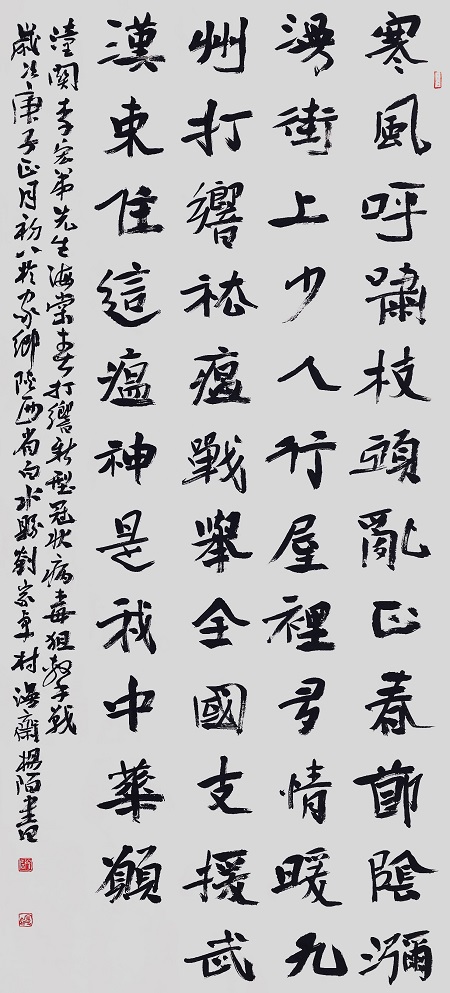 寒風呼嘯枝頭亂正春節陰瀰
漫街上少人行屋裡多情暖九
州打響祛瘟戰舉全國支援武
漢束住這瘟神是我中華願
潼関李宏弟先生海棠春打響新型冠状病毒狙擊戰
歲次庚子正月初八於家鄉陝西省白水縣劉家卓村海齋楊陌書